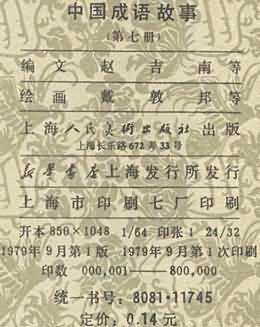 中国成语故事
(第七册)
编文 赵吉南等
绘画 戴敦邦等
上海人民美術出版社 出版
上海长乐路672弄33号
新华书店上海发行所发行
上海市印刷七厂印刷
开本850×1048 1/64 印张1 24/32
1979年9月第1版 1979年9月第1次印刷
印数 000,001——800,000
统一书号：8081·11745
定价：0.14元